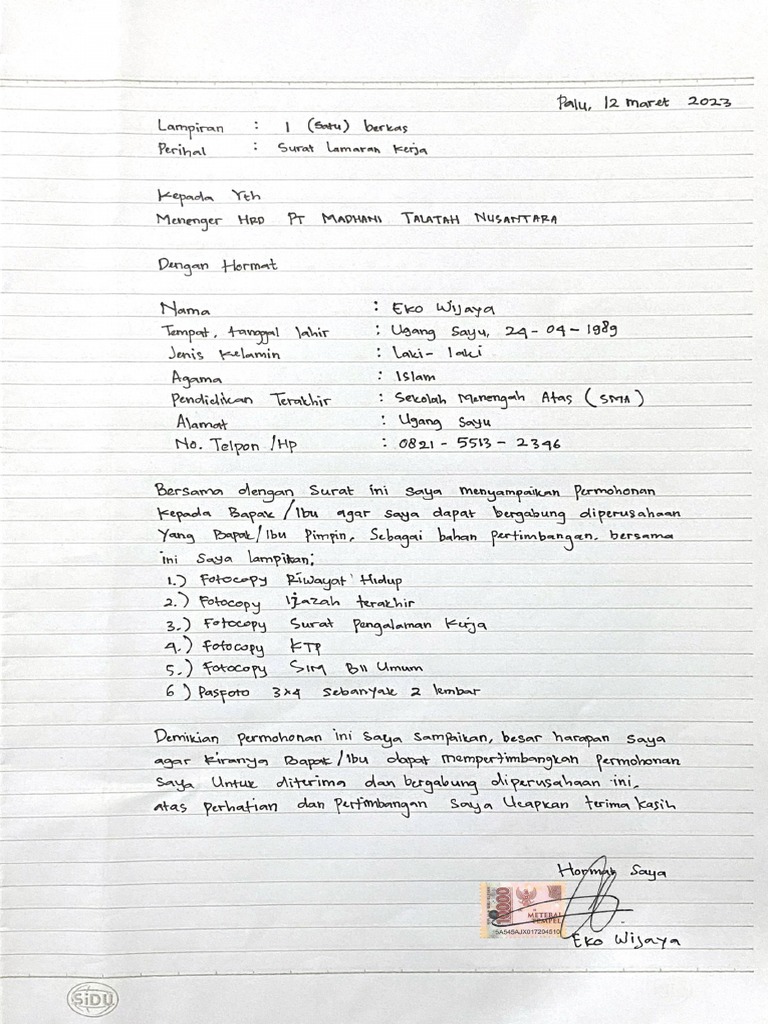 Palu, 12 maret 2023
Lampiran : 1 (satu) berkas
Perihal : Surat Lamaran Kerja
Kepada Yth
Menenger HRD PT MADHANI TALATAH NUSANTARA
Dengan Hormat
Nama : Eko Wijaya
Tempat, tanggal lahir : Ugang Sayu, 24-04-1989
Jenis Kelamin : Laki-laki
Agama : Islam
Pendidikan Terakhir : Sekolah Menengah Atas (SMA)
Alamat : Ugang Sayu
No. Telpon/Hp : 0821-5513-2346
Bersama dengan Surat ini saya menyampaikan permohonan
kepada Bapak/Ibu agar saya dapat bergabung diperusahaan
Yang Bapak/Ibu Pimpin, Sebagai bahan pertimbangan, bersama
ini Saya lampikan;
1.) Fotocopy Riwayat Hidup
2.) Fotocopy Ijazah terakhir
3.) Fotocopy Surat Pengalaman Kerja
4.) Fotocopy KTP
5.) Fotocopy SIM BII Umum
6) Pasfoto 3x4 sebanyak 2 lembar
Demikian permohonan ini saya sampaikan, besar harapan saya
agar kiranya Bapak/Ibu dapat mempertimbangkan permohonan
saya Untuk diterima dan bergabung diperusahaan ini,
atas perhatian dan pertimbangan saya Ucapkan terima kasih
Hormat Saya
10000
METERAI
TEMPEL
5A545AJX017204510
Eko Wijaya
SiDU